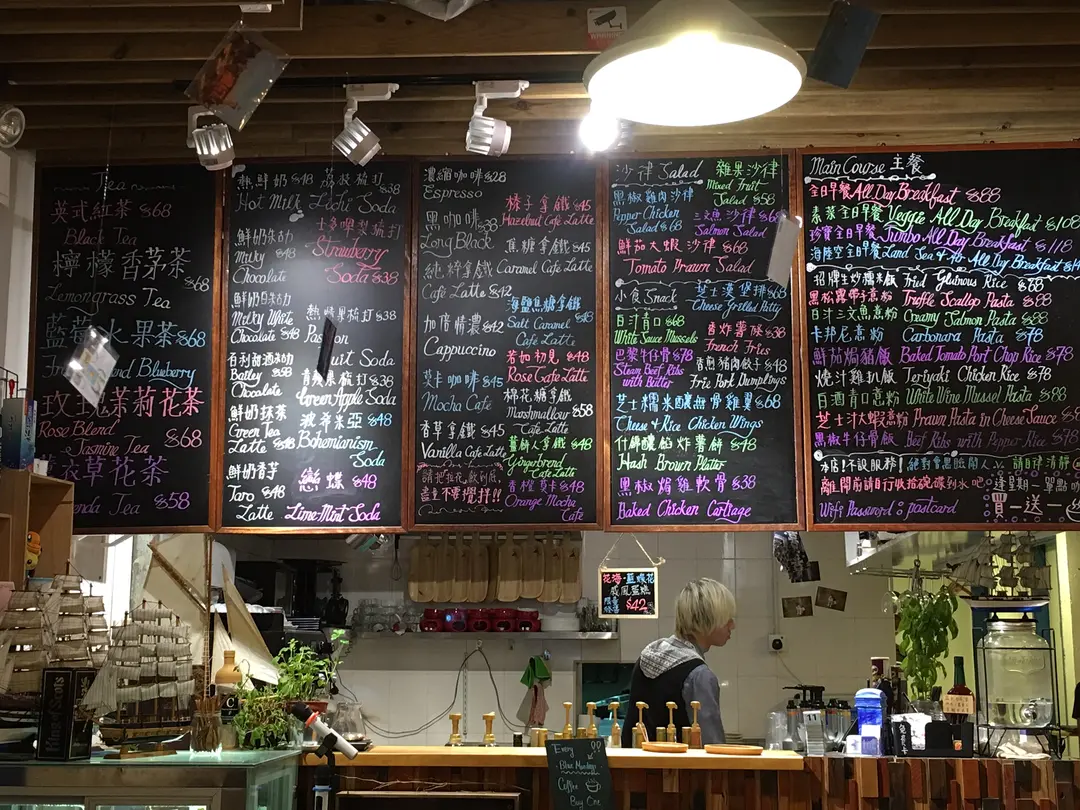 Tea
英式紅茶 $68
Black Tea
檸檬香茅茶 $68
Lemongrass Tea
果茶 $68
Blueberry
玫瑰茉莉花茶
Rose Blend
Jasmine Tea $68
衣草花茶
Tea $58
熱鮮奶 $48
Hot Milk
鮮奶朱古力
Milky $38
Chocolate
鮮奶白朱古力
Milky White
Chocolate $48
百利甜酒朱古力
Bailey $58
Chocolate
鮮奶抹茶
Green Tea
Latte $48
鮮奶香芋
Taro $48
Latte
荔枝梳打 $38
Lechi Soda
士多啤梨梳打
Strawberry
Soda $38
熱情果梳打 $38
Passion
Fruit Soda
梳打 $38
Green Apple Soda
波希米亞 $48
Bohemianism
Soda
戀蝶 $48
Lime Mint Soda
濃縮咖啡 $28
Espresso
黑咖啡 $38
Long Black
純粹拿鐵
Cafe Latte $42
加倍情濃 $42
Cappuccino
莫卡咖啡 $45
Mocha Cafe
香草拿鐵 $45
Vanilla Cafe Latte
請把拉花飲到底
盡量不要攪拌!!
榛子拿鐵 $45
Hazelnut Cafe Latte
焦糖拿鐵 $45
Caramel Cafe Latte
海鹽焦糖拿鐵
Salt Caramel $48
Cafe Latte
若如初見 $48
Rose Cafe Latte
棉花糖拿鐵
Marshmallow $58
Cafe Latte
薑餅人拿鐵 $48
Gingerbread
Cafe Latte
香橙莫卡 $48
Orange Mocha
Cafe
沙律 Salad
黑椒雞肉沙律
Pepper Chicken
Salad $68
雜果沙律
Mixed Fruit
Salad $58
三文魚沙律 $68
Salmon Salad
鮮茄大蝦沙律 $68
Tomato Prawn Salad
小食 Snack
芝士漢堡排 $68
Chese Grilled Patty
日汁青口 $68
White Sauce Mussels
香炸薯條 $38
French Fries
巴黎牛仔骨 $78
Steam Beef Ribs
with Butter
香煎豬肉餃子 $48
Frie Pork Dumplings
芝士糯米釀無骨雞翼 $68
Cheese & Rice Chicken Wings
什錦釀餡炸薯餅 $48
Hash Brown Platter
黑椒焗雞軟骨 $38
Baked Chicken Cartiage
Main Course 主餐
全日早餐 All Day Breakfast $88
素菜全日早餐 Veggie All Day Breakfast $108
珍寶全日早餐 Jumbo All Day Breakfast $118
海陸空全日早餐 Land Sea & Air All Day Breakfast
招牌生炒糯米飯 Fried Glutinous Rice $68
黑松露帶子意粉 Truffle Scallop Pasta $88
日汁三文魚意粉 Creamy Salmon Pasta $88
卡邦尼意粉 Carbonara Pasta $78
鮮茄焗豬飯 Baked Tomato Port Chop Rice $78
燒汁雞扒飯 Teriyaki Chicken Rice $78
日酒青口意粉 White Wine Mussel Pasta $88
芝士汁大蝦意粉 Prawn Pasta in Cheese Sauce $88
黑椒牛仔骨飯 Beef Ribs with Pepper Rice $78
本店不設服務
離開前請自行收拾
Wifi Password: postcard
逢星期一單點
買一送一
花海·藍蝶花
戚風蛋糕
$42
Every
Blue Monday
Coffee
Buy One